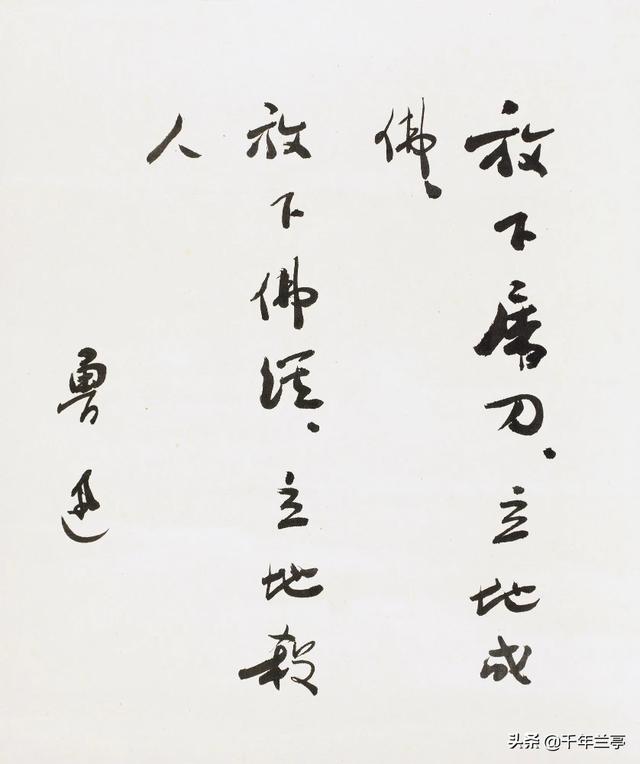 放下屠刀、立地成
佛、
放下佛经、立地杀
人
鲁迅
头条 @千年兰亭